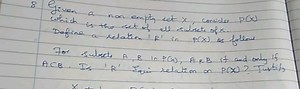 8. Given a non empty set X, consider P(X)
which is the set of all subsets of X.
Define a relation 'R' in P(X) as follow
For subsets A, B in P(X), ARB if and only if
A⊂B Is 'R' Equi relation on P(X)? Justify